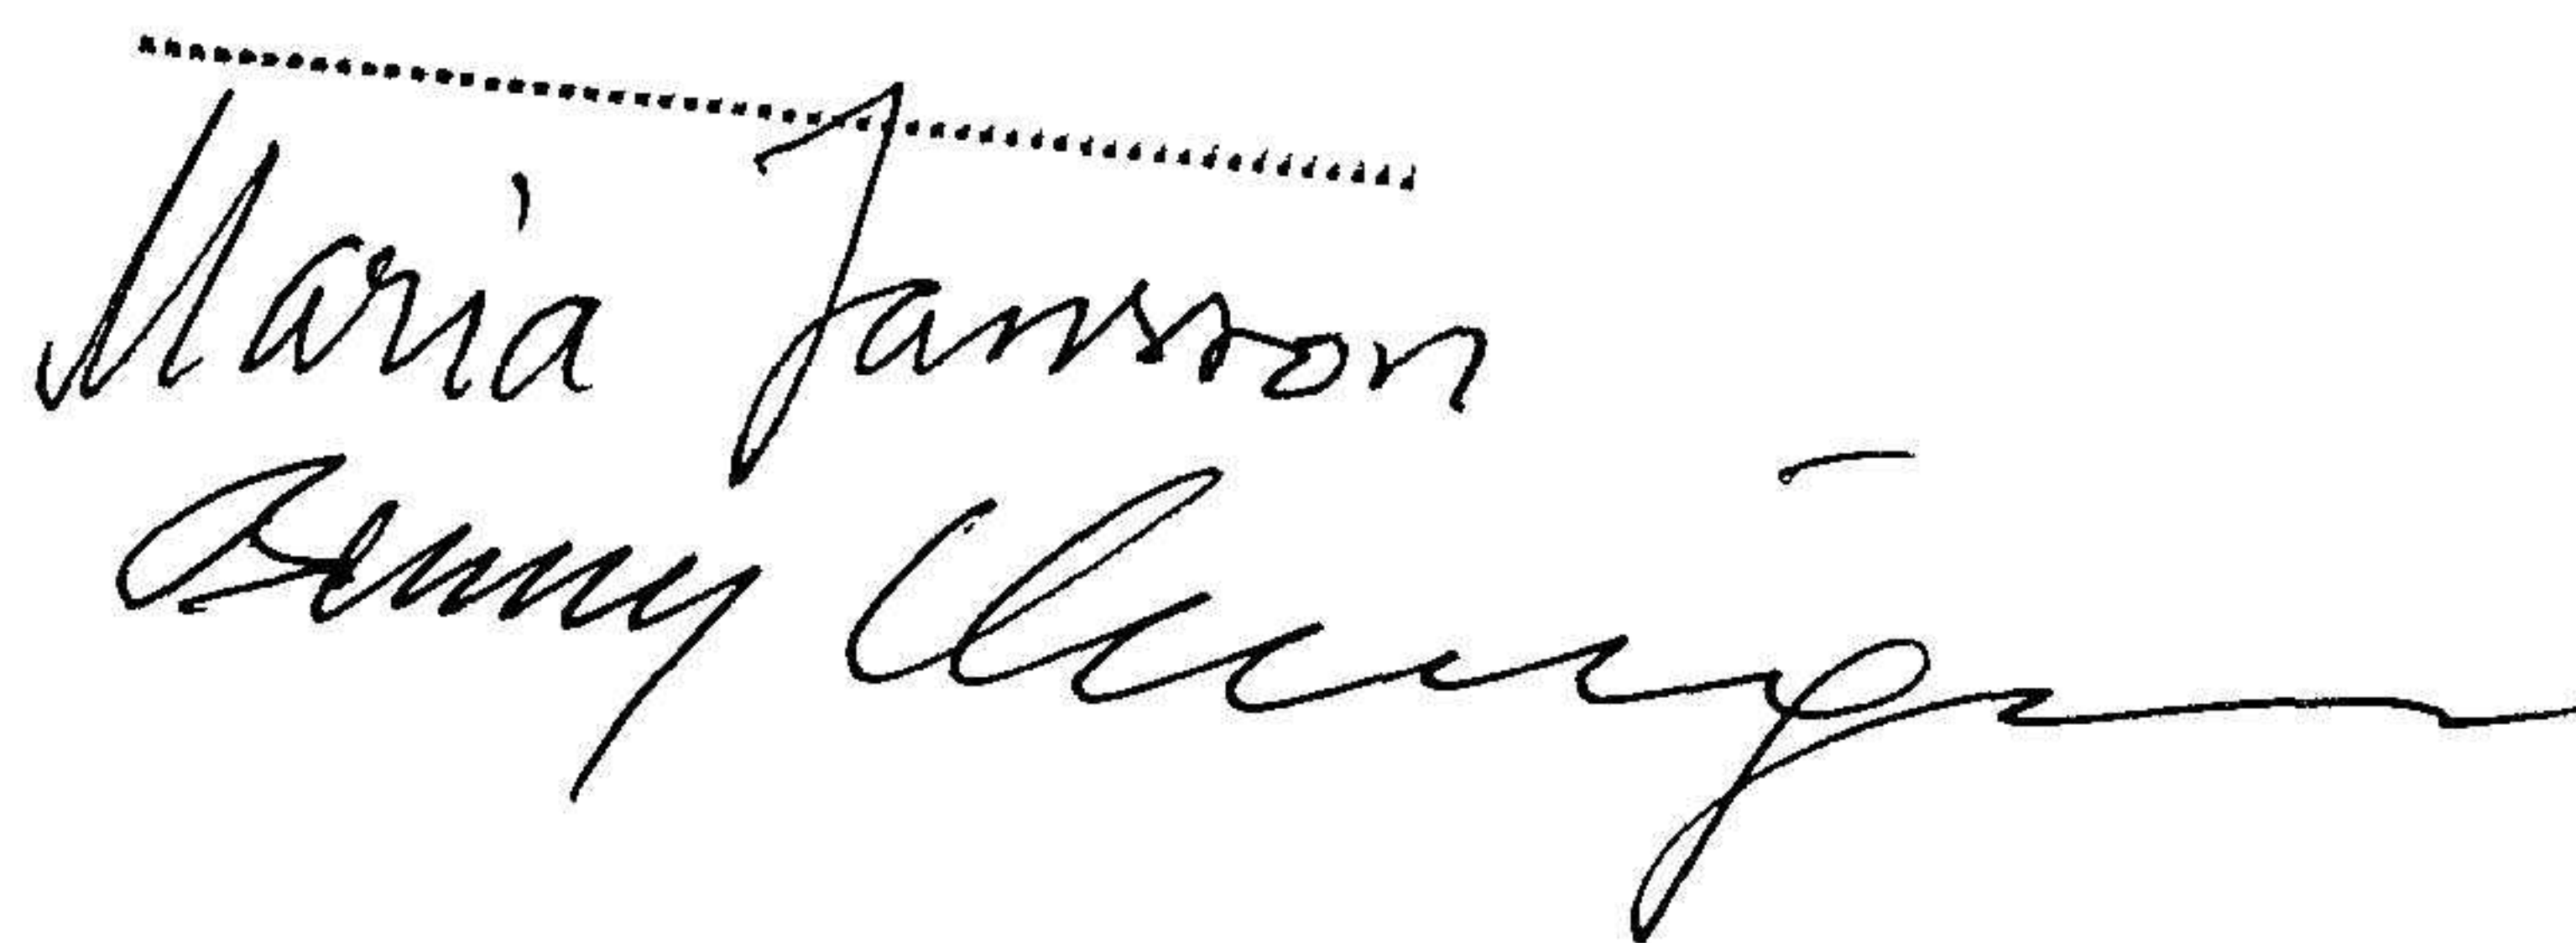 Maria Jansson
Benny